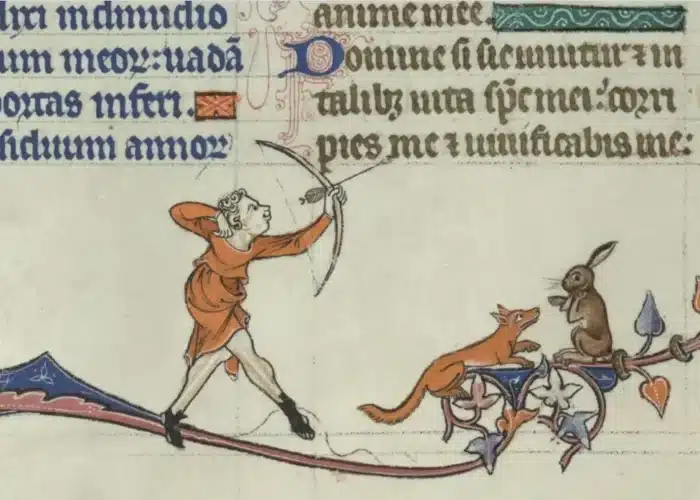 dixi in dimidio
um meoꝝ: uadā
portas inferi.
siduum annoꝝ
anime mee.
Domine si sic uiuitur ⁊ in
talibꝫ uita sp̄c mei: corri
pies me ⁊ uiuificabis me: